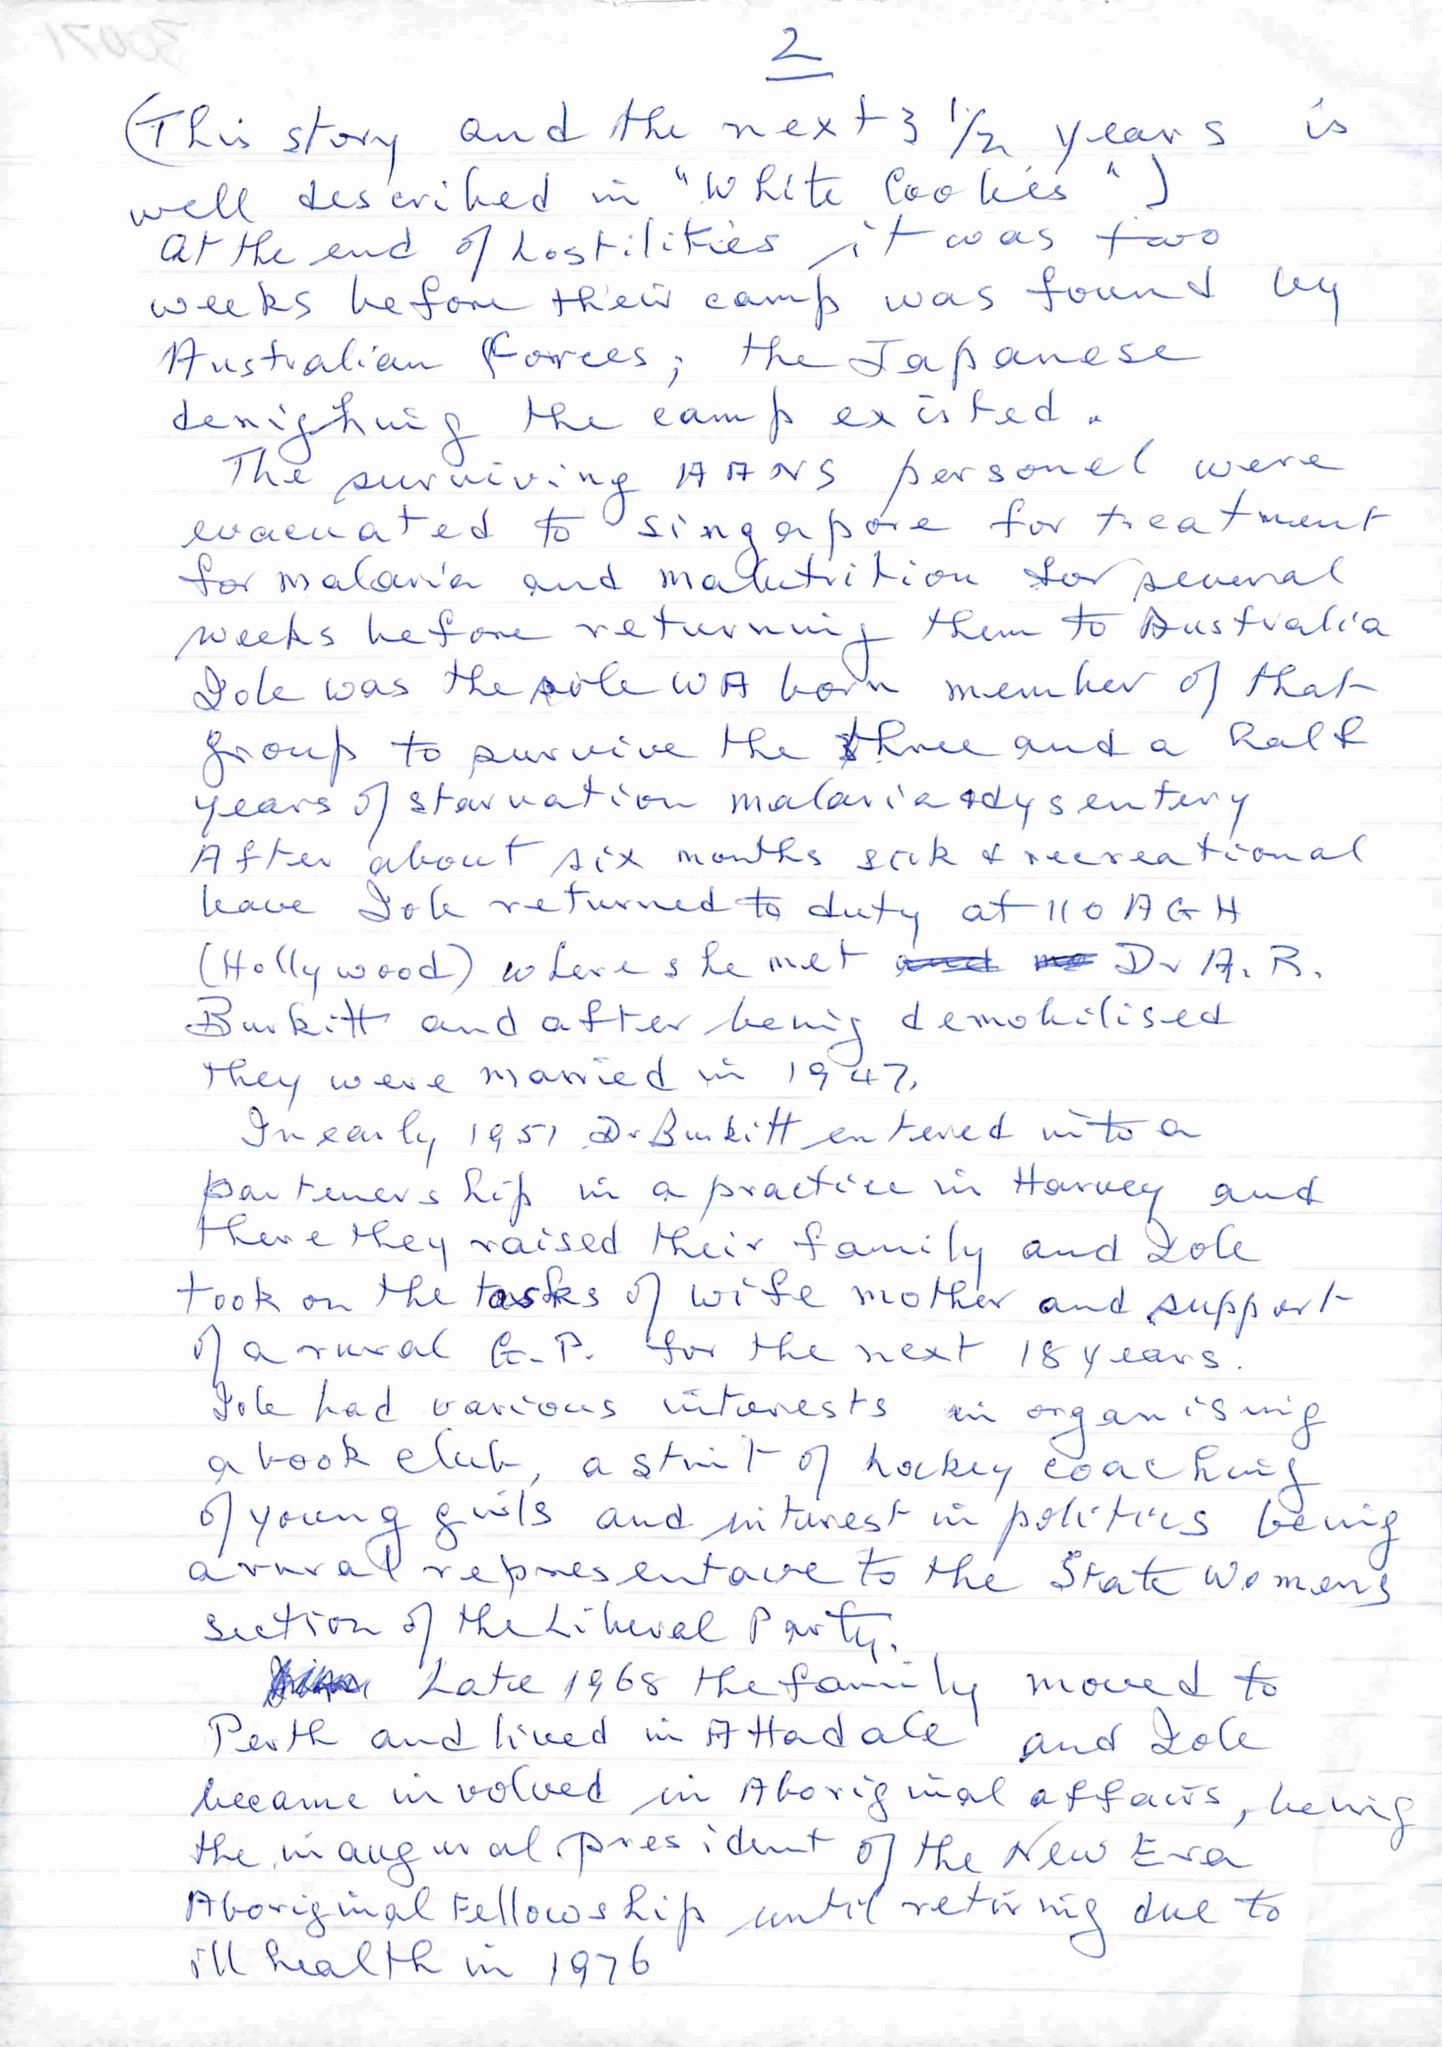 2
(This story and the next 3 1/2 years is
well described in "White Coolies")
At the end of hostilities it was two
weeks before their camp was found by
Australian Forces; the Japanese
denighing the camp existed.
The surviving AANS personel were
evacuated to Singapore for treatment
for malaria and malutrition for several
weeks before returning them to Australia
Iole was the sole WA born member of that
group to survive the three and a half
years of starvation malaria + dysentery
After about six months sick & recreational
leave Iole returned to duty at 110 AGH
(Hollywood) where she met Dr A. R.
Burkitt and after being demobilised
they were married in 1947.
In early 1951 Dr Burkitt entered into a
partenership in a practice in Harvey and
there they raised their family and Iole
took on the tasks of wife mother and support
of a rural G.P. for the next 18 years.
Iole had various interests in organising
a book club, a stint of hockey coaching
of young girls and interest in politics being
a rural representave to the State Womens
section of the Liberal Party.
Late 1968 the family moved to
Perth and lived in Attadale and Iole
became involved in Aboriginal affairs, being
the inaugural president of the New Era
Aboriginal Fellowship until retiring due to
ill health in 1976